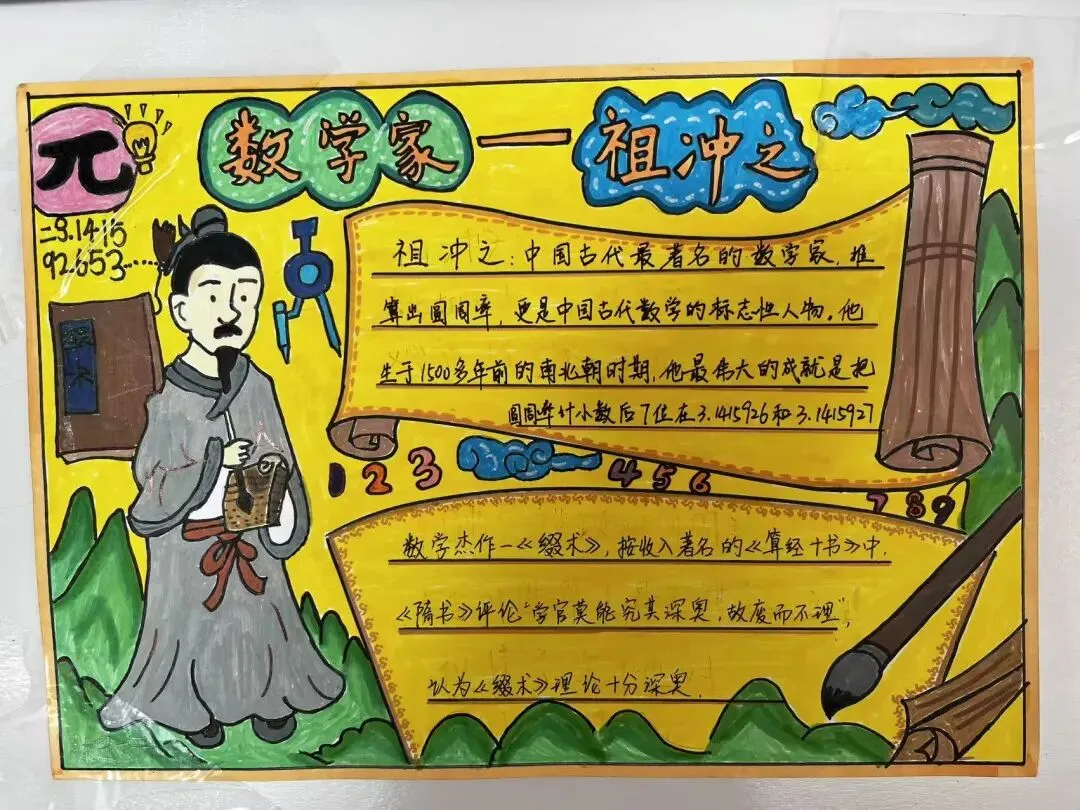 π
数学家—祖冲之
=3.1415
92.653......
缀术
祖冲之：中国古代最著名的数学家，推
算出圆周率，更是中国古代数学的标志性人物。他
生于1500多年前的南北朝时期，他最伟大的成就是把
圆周率计小数后7位在3.1415926和3.1415927
1 2 3 4 5 6 7 8 9
数学杰作—《缀术》，按收入著名的《算经十书》中，
《隋书》评论“学官莫能究其深奥，故废而不理”，
认为《缀术》理论十分深奥。